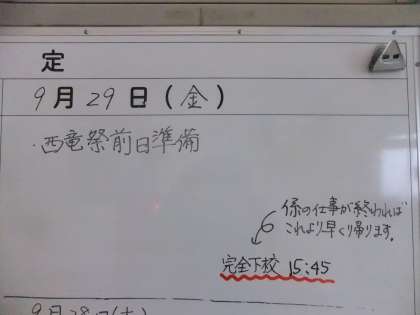 定
9月29日(金)
・西竜祭前日準備
係の仕事が終われば
これより早く帰ります。
完全下校 15:45